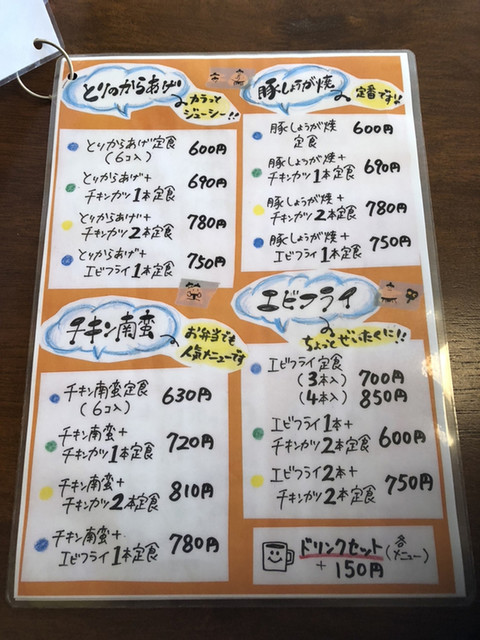 とりのからあげ
カラッと
ジューシー!!
とりからあげ定食 600円
(6コ入)
とりからあげ+ 690円
チキンカツ1本定食
とりからあげ+ 780円
チキンカツ2本定食
とりからあげ+ 750円
エビフライ1本定食
豚しょうが焼
定番です!!
豚しょうが焼 600円
定食
豚しょうが焼+ 690円
チキンカツ1本定食
豚しょうが焼+ 780円
チキンカツ2本定食
豚しょうが焼+ 750円
エビフライ1本定食
チキン南蛮
お弁当でも
人気メニューです
チキン南蛮定食 630円
(6コ入)
チキン南蛮+ 720円
チキンカツ1本定食
チキン南蛮+ 810円
チキンカツ2本定食
チキン南蛮+ 780円
エビフライ1本定食
エビフライ
ちょっとぜいたくに!!
エビフライ定食
(3本入) 700円
(4本入) 850円
エビフライ1本+ 600円
チキンカツ2本定食
エビフライ2本+ 750円
チキンカツ2本定食
ドリンクセット(各メニュー)
+150円